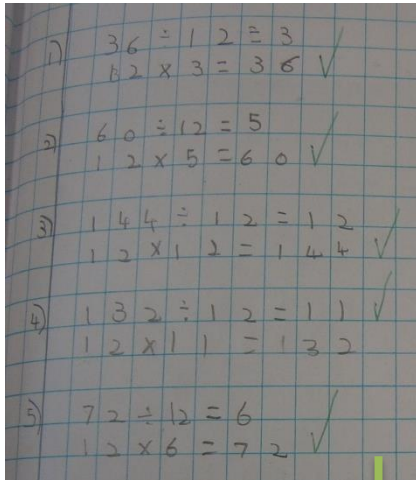 1) 36 ÷ 12 = 3
12 × 3 = 36
2) 60 ÷ 12 = 5
12 × 5 = 60
3) 144 ÷ 12 = 12
12 × 12 = 144
4) 132 ÷ 12 = 11
12 × 11 = 132
5) 72 ÷ 12 = 6
12 × 6 = 72